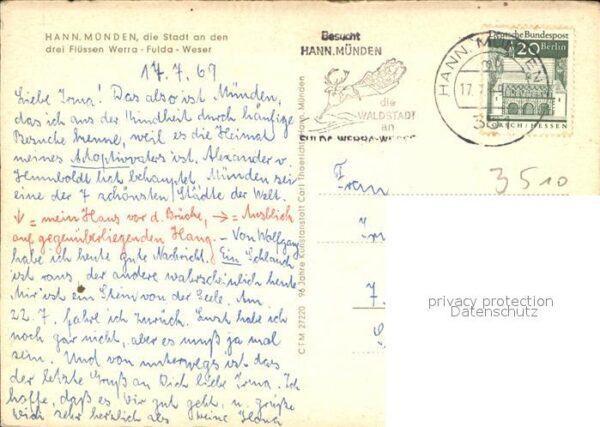 HANN. MÜNDEN, die Stadt an den
drei Flüssen Werra - Fulda - Weser
17.7.69
Liebe Irma! Das also ist Münden,
das ich aus der Kindheit durch häufige
Besuche kenne, weil es die Heimat
meines Adoptivvaters ist. Alexander v.
Humboldt lich behauptet, Münden sei
eine der 7 schönsten Städte der Welt.
↓ = mein Haus vor d. Brücke, → = Ausblick
auf gegenüberliegenden Hang. - Von Wolfgang
habe ich heute gute Nachricht. Ein Schlauch
ist raus, der andere wahrscheinlich heute.
Mir ist ein Stein von der Seele. Am
22.7. fahre ich zurück. Lust habe ich
noch gar nicht, aber es muß ja mal
sein. Und von unterwegs ist das
der letzte Gruß an Dich liebe Irma. Ich
hoffe, daß es Dir gut geht u. grüße
Dich sehr herzlich als Deine
C·T·M 27220 96 Jahre Kunstanstalt Carl Thoericht Hann. Münden
Besucht
HANN.MÜNDEN
die
WALDSTADT
an
FULDA-WERRA-WESER
HANN. MÜNDEN
17.7.69
351
Deutsche Bundespost
20 Berlin
LORSCH/HESSEN
3510
Frau
7.
privacy protection
Datenschutz